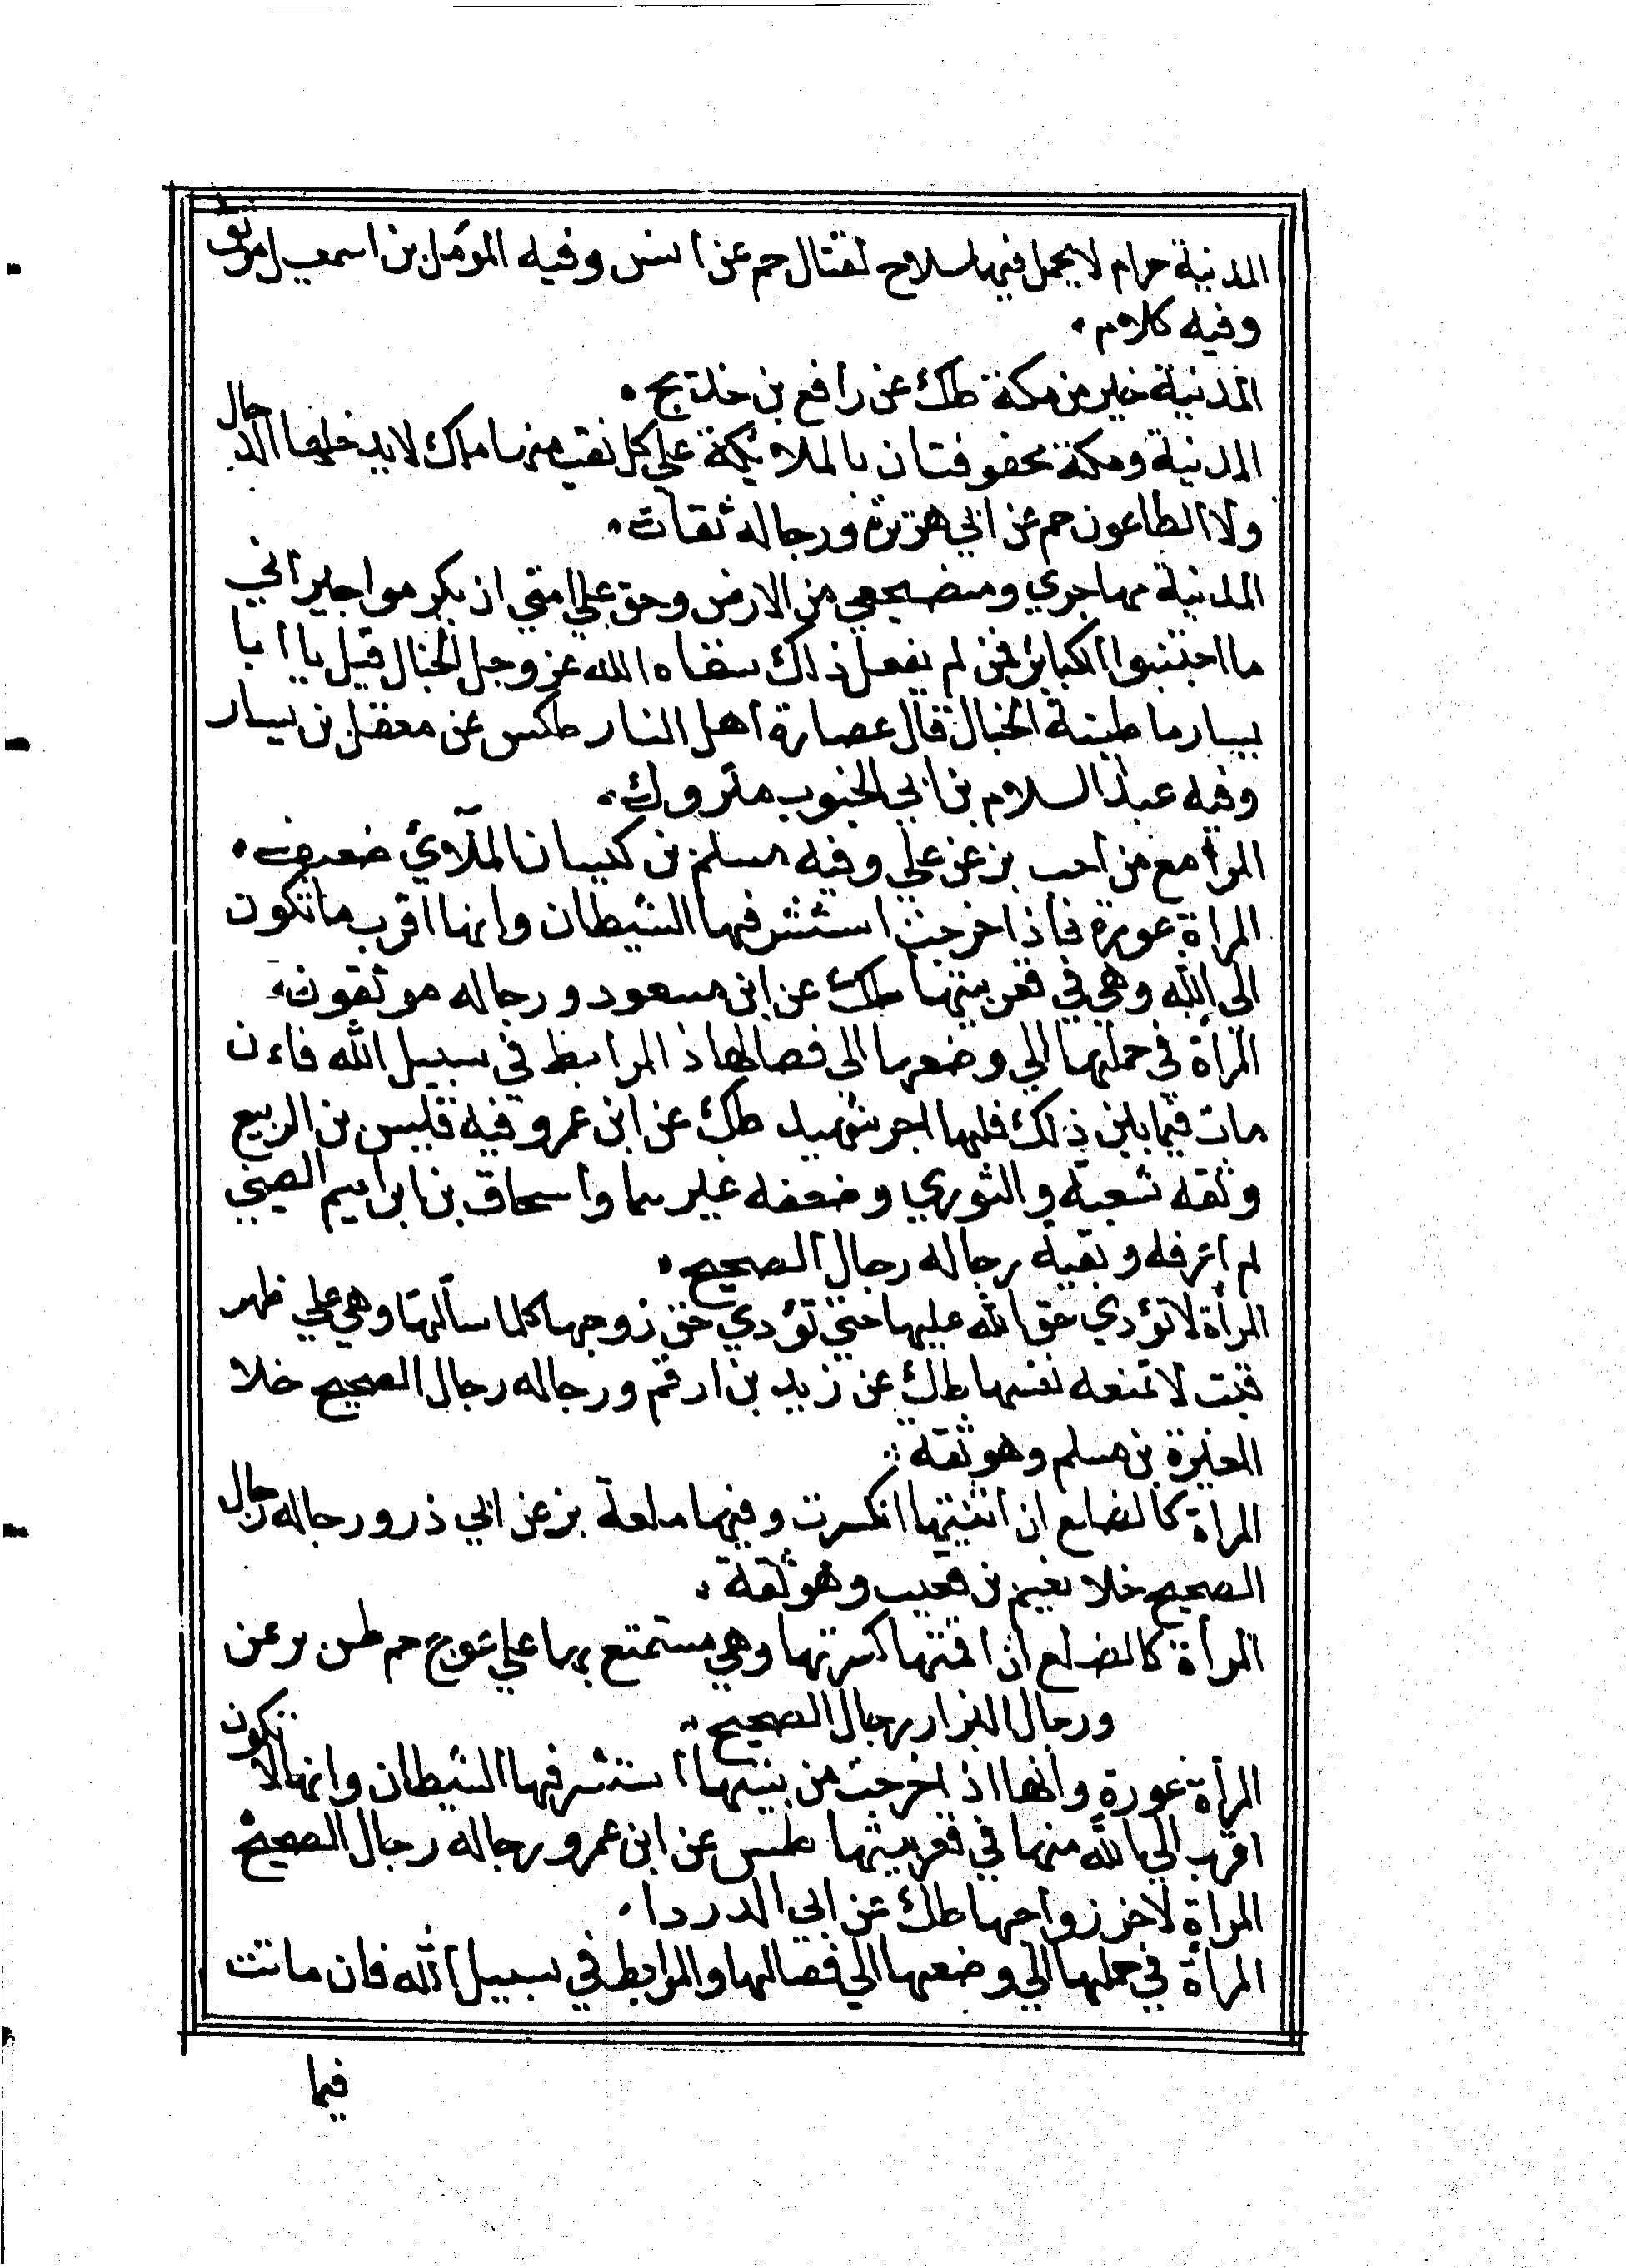 المدينة حرام لا يحمل فيها سلاح لقتال حم عن انس وفيه المؤمل بن اسمعيل موثق
وفيه كلام
المدينة خير من مكة طك عن رافع بن خديج
المدينة ومكة محفوفتان بالملائكة على كل نقب منها ملك لا يدخلها الدجال
ولا الطاعون حم عن ابي هريرة ورجاله ثقات
المدينة مهاجري ومضجعي من الارض وحق علي امتي ان يكرموا جيراني
ما اجتنبوا الكبائر فمن لم يفعل ذلك سقاه الله عز وجل الخبال قيل يا ابا
يسار ما طينة الخبال قال عصارة اهل النار طكس عن معقل بن يسار
وفيه عبد السلام بن ابي الجنوب متروك
المرأ مع من احب بز عن علي وفيه مسلم بن كيسان الملآوي ضعيف
المراة عورة فاذا خرجت استشرفها الشيطان وانها اقرب ما تكون
الى الله وهي في قعر بيتها طك عن ابن مسعود ورجاله موثقون
المرأة في حملها الي وضعها الى فصالها ذ المرابط في سبيل الله فاءن
مات فيما بين ذلك فلها اجر شهيد طك عن ابن عمر وفيه قيس بن الربيع
وثقه شعبة والثوري وضعفه غيرهما واسحاق بن ابراهيم الصيني
لم اعرفه وبقية رجاله رجال الصحيح
المرأة لا تؤدي حق الله عليها حتى تؤدي حق زوجها كلما سألها وهي علي ظهر
قتب لا تمنعه نفسها طك عن زيد بن ارقم ورجاله رجال الصحيح خلا
المغيرة بن مسلم وهو ثقة
المراة كالضلع ان اثنيتها انكسرت وفيها بلغة بز عن ابي ذر ورجاله رجال
الصحيح خلا نعيم بن قعيب وهو ثقة
المرأة كالضلع ان اقمتها كسرتها وهي مستمتع بها علي عوج حم طس بر عن
ورجال البزار رجال الصحيح
المرأة عورة وانها اذ اخرجت من بيتها استشرفها الشيطان وانها لا تكون
اقرب الي الله منها في قعر بيتها طس عن ابن عمر ورجاله رجال الصحيح
المراة لاخر زواجها طك عن ابي الدردا
المرأة في حملها الي وضعها الي فصالها والمرابط في سبيل الله فان ماتت
فيما